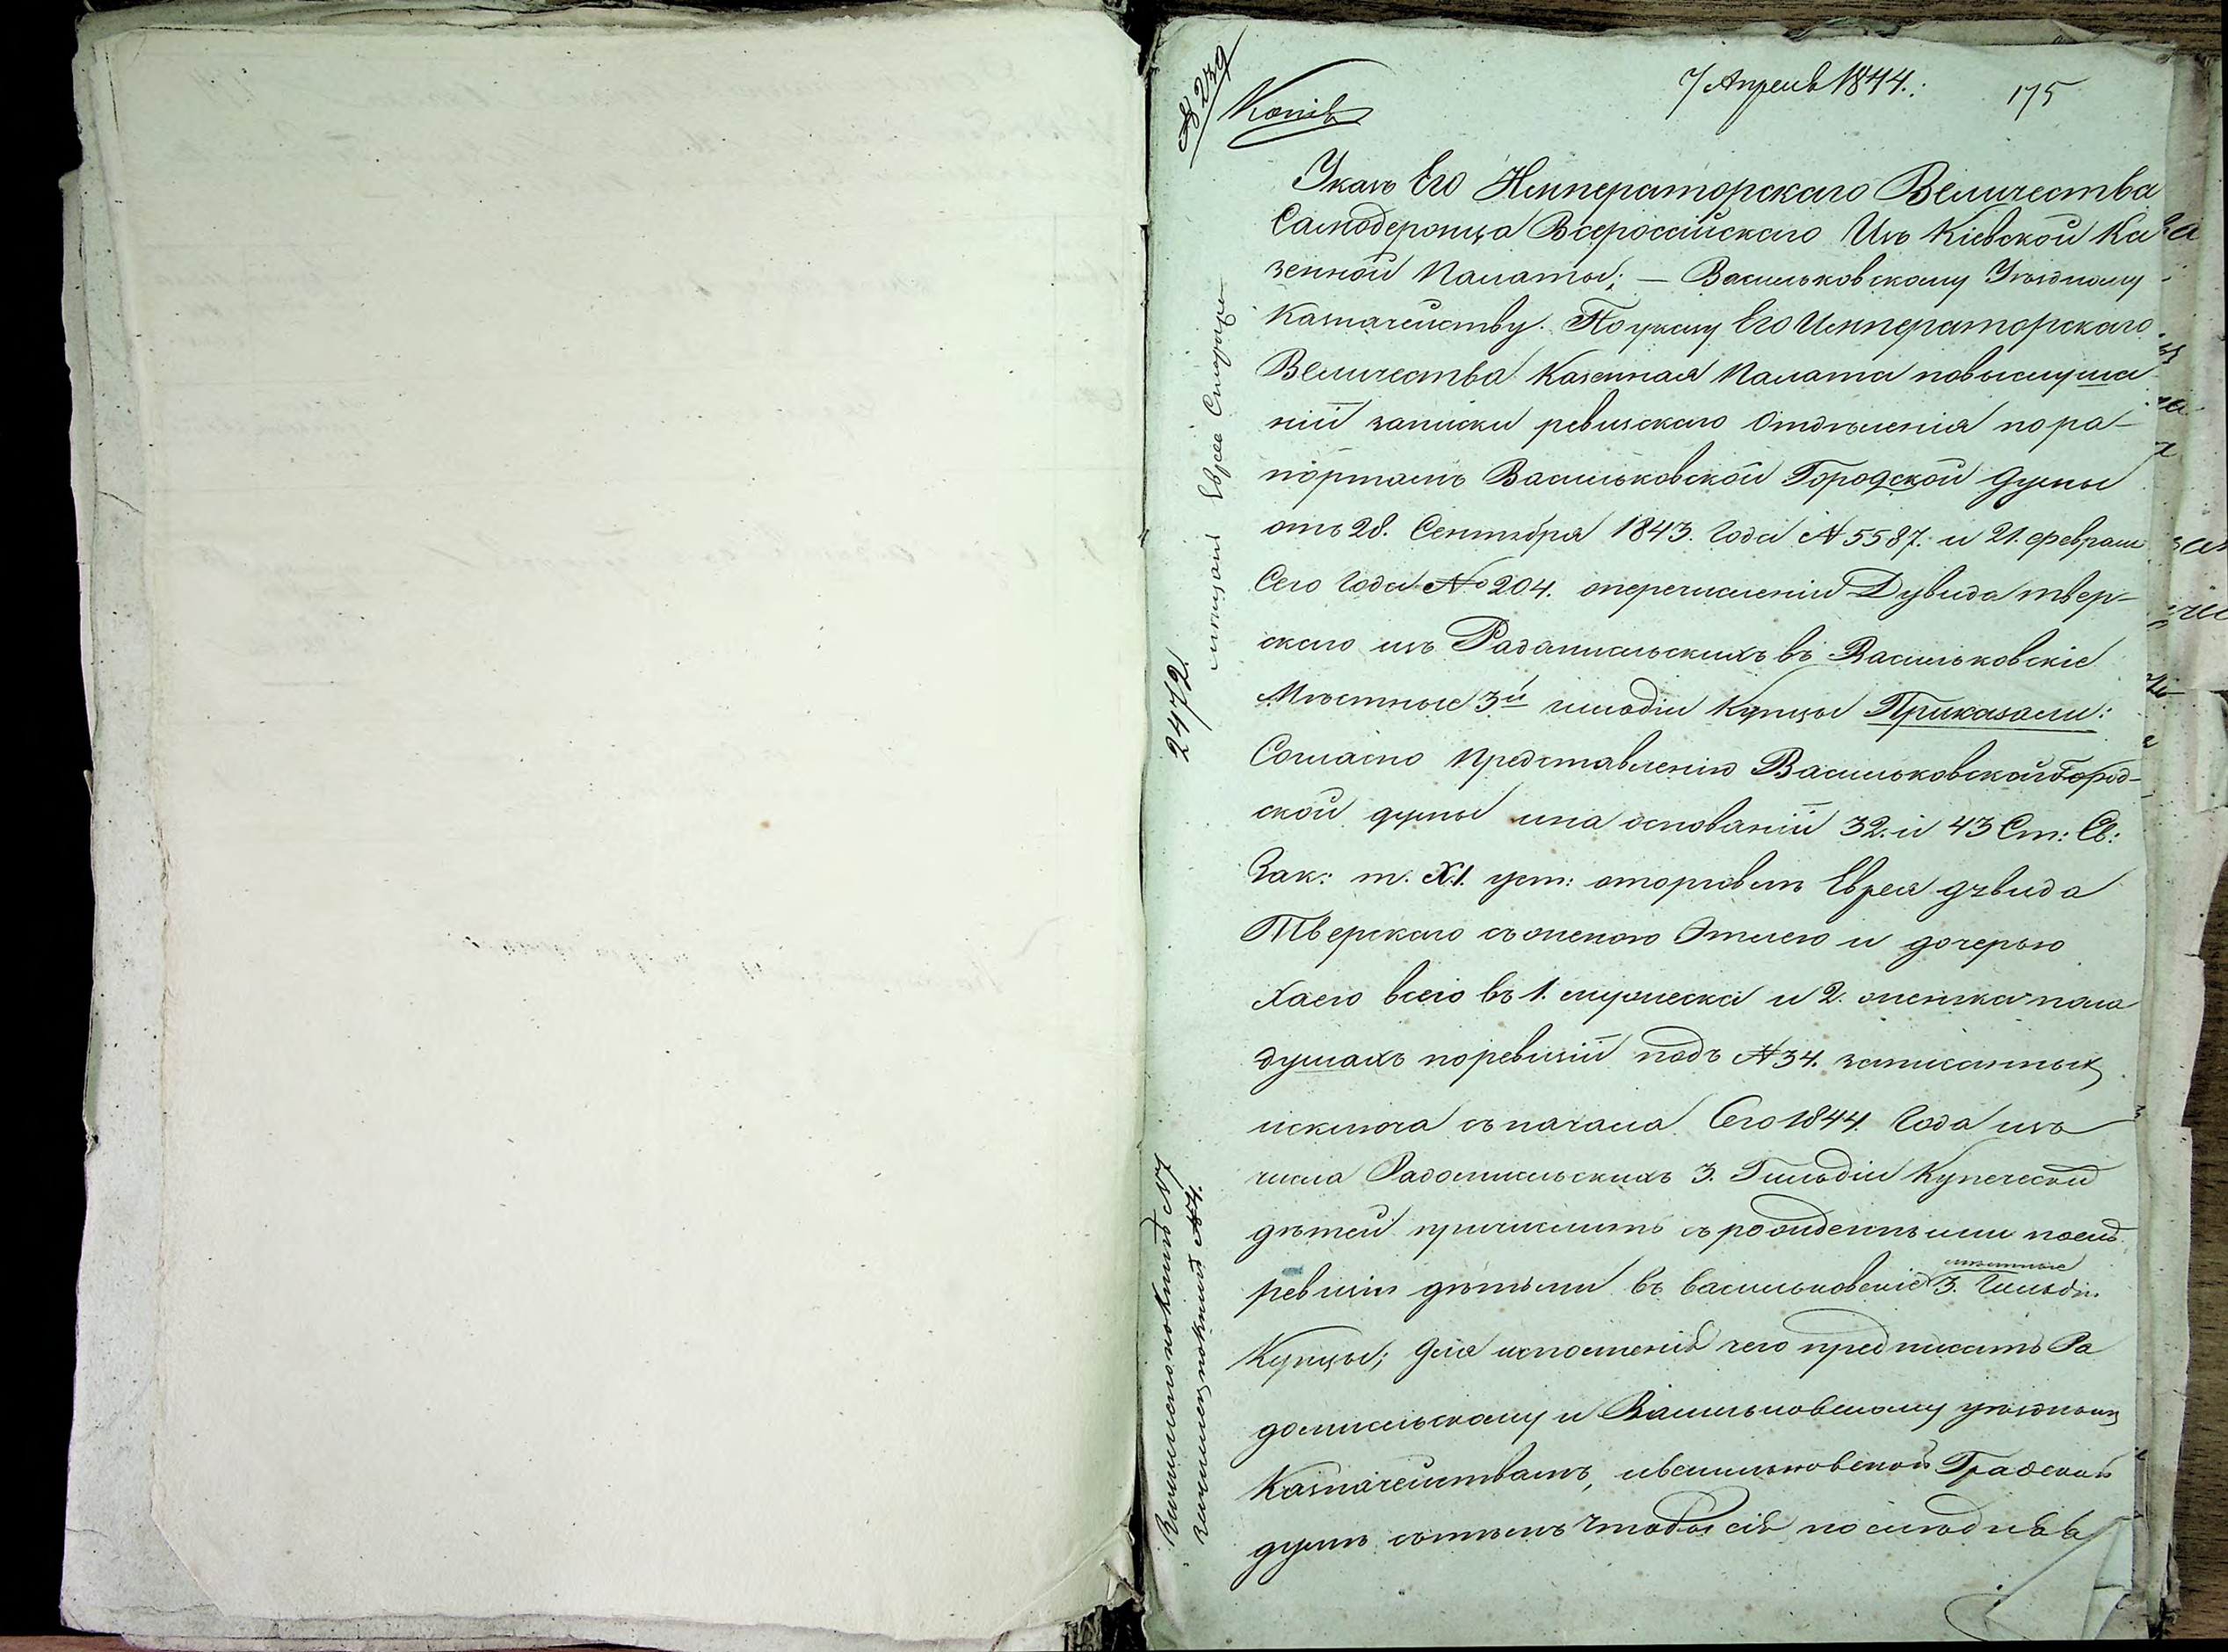 № 239
Копія
7 Апреля 1844.
175
Указъ Его Императорскаго Величества
Самодержца Всероссійскаго Изъ Кіевской Ка
зенной Палаты; — Васильковскому Уѣздному
Казначейству. По указу Его Императорскаго
Величества Казенная Палата повыслуша
ніи записки ревизскаго Отдѣленія пора-
портамъ Васильковской Городской Думы
отъ 28. Сентября 1843. Года № 5587. и 21. февраля
Сего Года № 204. оперечисленіи Дувида твер-
скаго изъ Радомысльскихъ въ Васильковскіе
Мѣстные 3й гильдіи Купцы Приказали:
Согласно Представленію Васильковской Город-
ской думы ина основаніи 32. и 43 Ст: Св:
Зак: т. XI. уст: оторговлѣ Еврея дувида
Тверскаго съженою Этлею и дочерью
Хаею всего въ 1. мужеска и 2. женска пола
душахъ поревизіи подъ № 34. записанныхъ
исключа съначала Сего 1844. Года изъ
числа Радомысльскихъ 3. Гильдіи Купеческихъ
дѣтей причислить съ рожденными послѣ
ревизіи дѣтьми въ васильковскіе мѣстные 3. Гильдіи
Купцы; Для исполненія чего предписать Ра
домысльскому и Васильковскому уѣзднымъ
Казначействамъ, ивасильковской Градской
думѣ сътѣмъ чтобы сія послѣдняя
мѣщане Евреи
2472